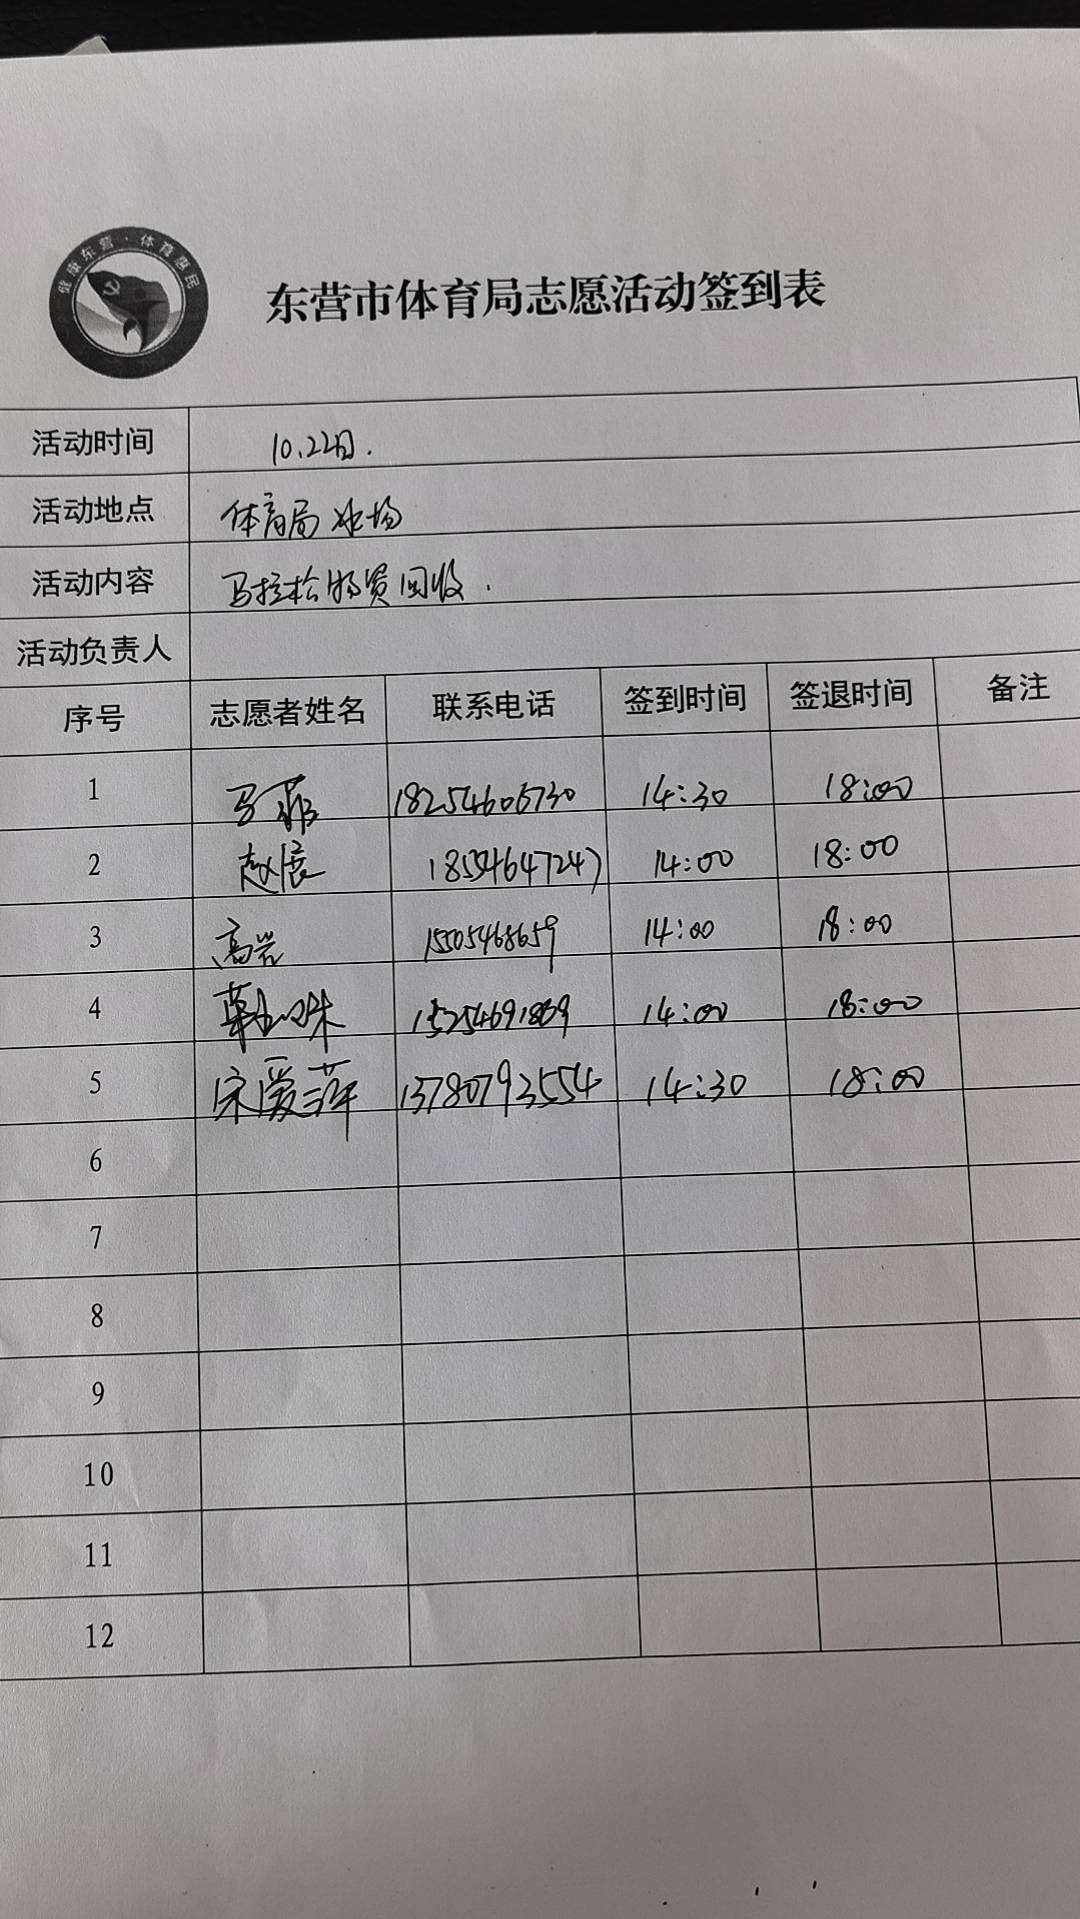 健康东营·体育惠民
东营市体育局志愿活动签到表
活动时间 10.22日.
活动地点 体育局 冰场
活动内容 马拉松物资回收.
活动负责人
序号 志愿者姓名 联系电话 签到时间 签退时间 备注
1 马菲 18254606730 14:30 18:00
2 赵展 18554647247 14:00 18:00
3 高岩 15505468659 14:00 18:00
4 15254691869 14:00 18:00
5 宋爱萍 13780793554 14:30 18:00
6
7
8
9
10
11
12